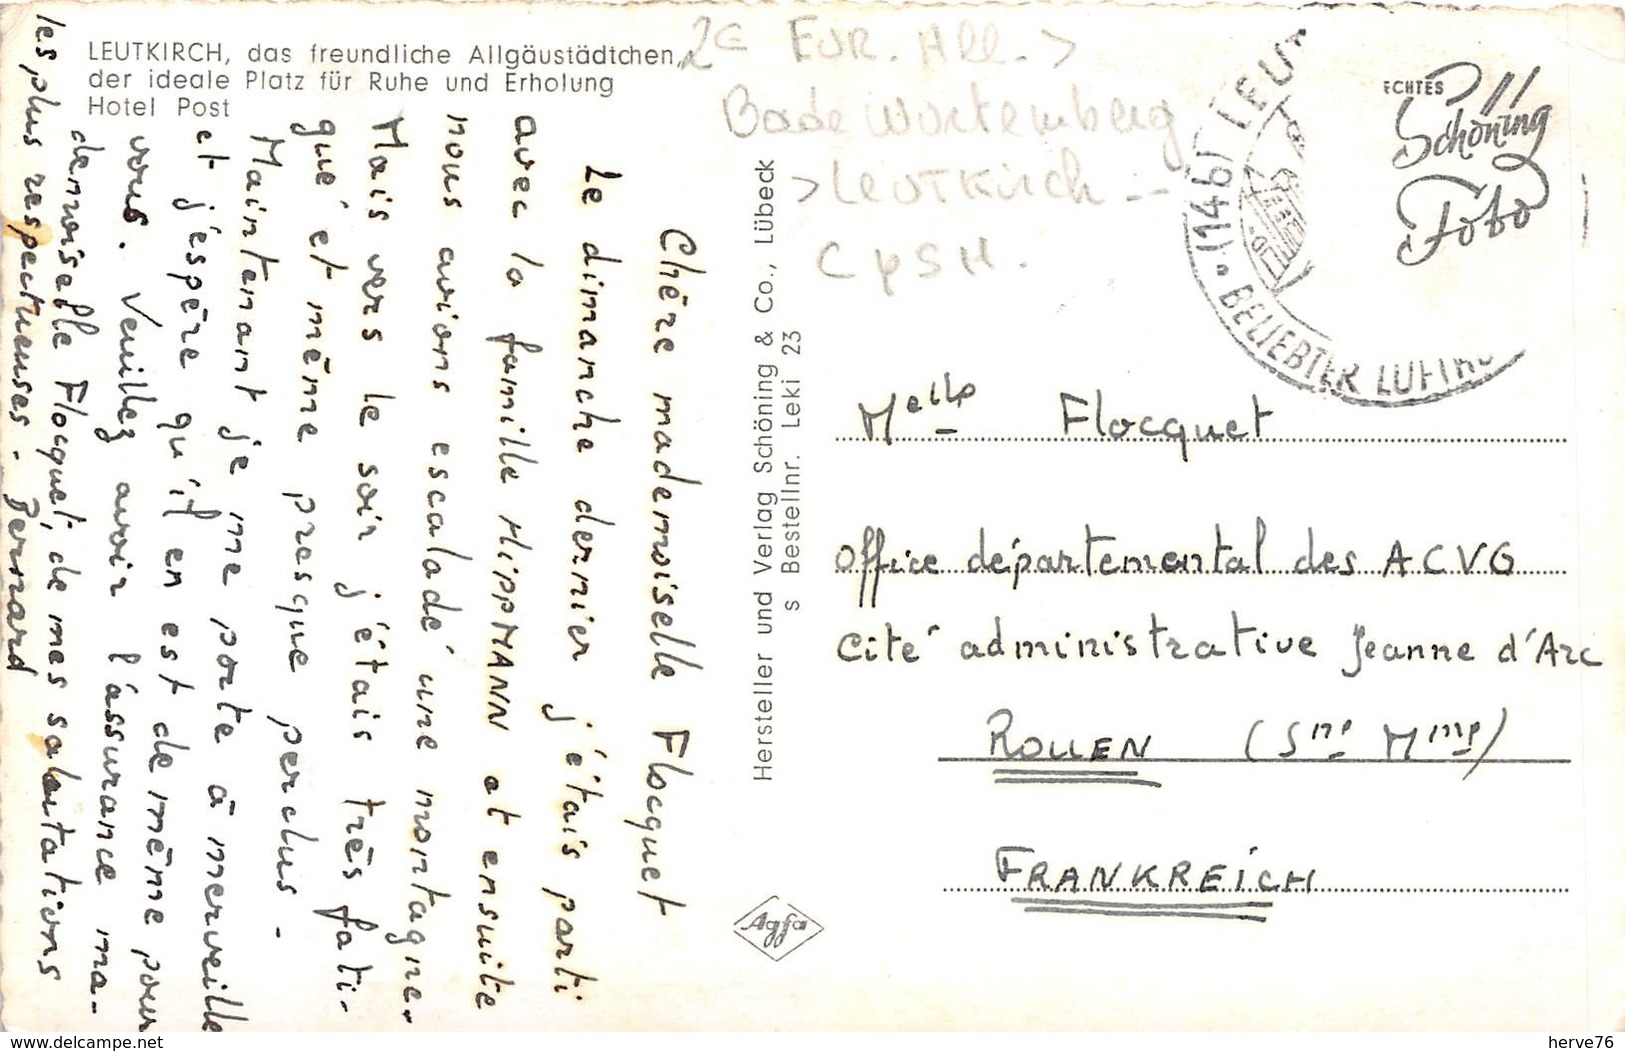 LEUTKIRCH, das freundliche Allgäustädtchen,
der ideale Platz für Ruhe und Erholung
Hotel Post
2€ EUR. All. >
Bade Wurtemberg
> Leutkirch --
CPSM.
(14b) LEUT
BELIEBTER LUFTKU
ECHTES
Schöning
Foto
Chère mademoiselle Flocquet
Le dimanche dernier j'étais parti
avec la famille HIPPMANN et ensuite
nous avions escaladé une montagne.
Mais vers le soir j'étais très fati-
gué et même presque perclus.
Maintenant je me porte à merveille
et j'espère qu'il en est de même pour
vous. Veuillez avoir l'assurance ma-
demoiselle Flocquet, de mes salutations
les plus respectueuses. Bernard
Hersteller und Verlag Schöning & Co., Lübeck
s Bestellnr. Leki 23
Agfa
Melle Flocquet
Office départemental des ACVG
Cité administrative Jeanne d'Arc
ROUEN (Sne Mme)
FRANKREICH
delcampe.net
herve76